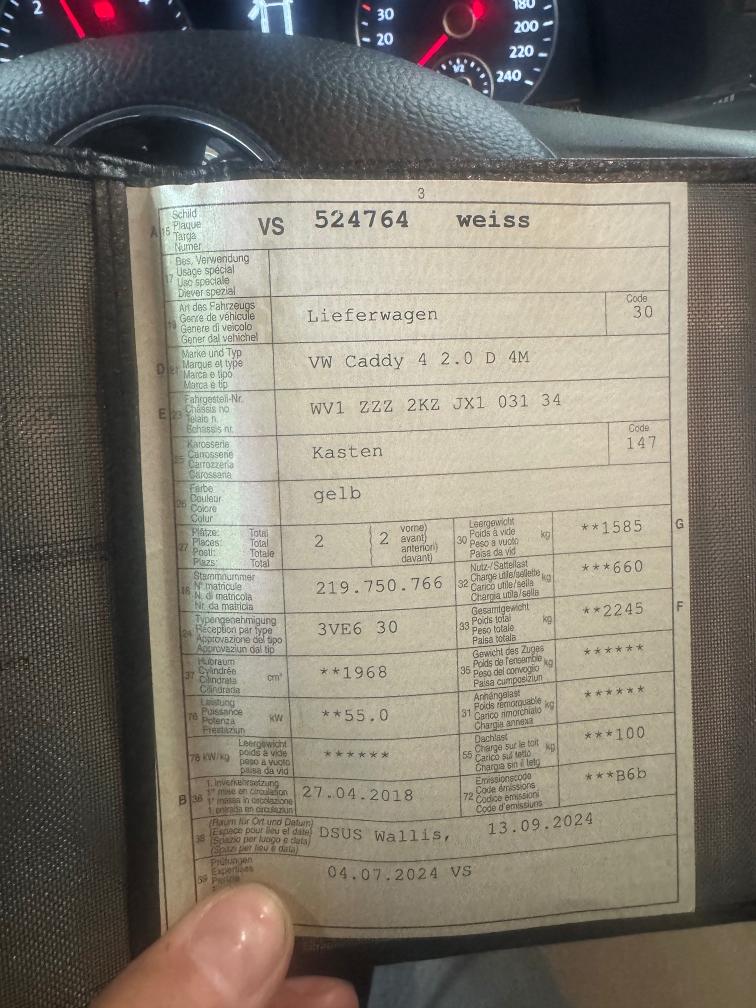 2
30
20
180
200
220
240
1/2
3
A 15 Schild
Plaque
Targa
Numer
VS 524764 weiss
17 Bes. Verwendung
Usage spécial
Uso speciale
Diever spezial
19 Art des Fahrzeugs
Genre de véhicule
Genere di veicolo
Gener dal vehichel
Lieferwagen
Code
30
D 21 Marke und Typ
Marque et type
Marca e tipo
Marca e tip
VW Caddy 4 2.0 D 4M
E 23 Fahrgestell-Nr.
Châssis no
Telaio n.
Schassis nr.
WV1 ZZZ 2KZ JX1 031 34
25 Karosserie
Carrosserie
Carrozzeria
Carossaria
Kasten
Code
147
26 Farbe
Couleur
Colore
Colur
gelb
27 Plätze: Total
Places: Total
Posti: Totale
Plazs: Total
2
2 vorne)
avant)
anteriori)
davant)
30 Leergewicht
Poids à vide kg
Peso a vuoto
Paisa da vid
**1585 G
18 Stammnummer
N° matricule
N. di matricola
Nr. da matricla
219.750.766
32 Nutz-/Sattellast
Charge utile/sellette kg
Carico utile/sella
Chargia utila/sella
***660
24 Typengenehmigung
Réception par type
Approvazione del tipo
Approvaziun dal tip
3VE6 30
33 Gesamtgewicht
Poids total kg
Peso totale
Paisa totala
**2245 F
37 Hubraum
Cylindrée cm³
Cilindrata
Cilindrada
**1968
35 Gewicht des Zuges
Poids de l'ensemble kg
Peso del convoglio
Paisa cumposiziun
******
76 Leistung
Puissance kW
Potenza
Prestaziun
**55.0
31 Anhängelast
Poids remorquable kg
Carico rimorchiato
Chargia annexa
******
78 kW/kg Leergewicht
poids à vide
peso a vuoto
paisa da vid
******
55 Dachlast
Charge sur le toit kg
Carico sul tetto
Chargia sin il tetg
***100
B 36 1. Inverkehrsetzung
1re mise en circulation
1a messa in circolazione
1. entrada en circulaziun
27.04.2018
72 Emissionscode
Code émissions
Codice emissioni
Code d'emissiuns
***B6b
38 (Raum für Ort und Datum)
(Espace pour lieu et date)
(Spazio per luogo e data)
(Spazi per lieu e data)
DSUS Wallis, 13.09.2024
39 Prüfungen
Expertises
04.07.2024 VS